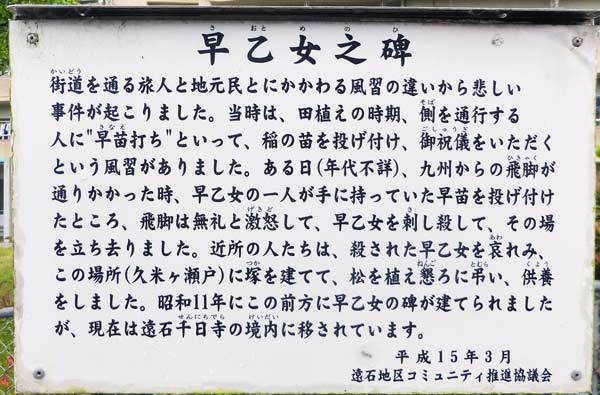 早乙女之碑
街道を通る旅人と地元民とにかかわる風習の違いから悲しい
事件が起こりました。当時は、田植えの時期、側を通行する
人に"早苗打ち"といって、稲の苗を投げ付け、御祝儀をいただく
という風習がありました。ある日(年代不詳)、九州からの飛脚が
通りかかった時、早乙女の一人が手に持っていた早苗を投げ付け
たところ、飛脚は無礼と激怒して、早乙女を刺し殺して、その場
を立ち去りました。近所の人たちは、殺された早乙女を哀れみ、
この場所(久米ヶ瀬戸)に塚を建てて、松を植え懇ろに弔い、供養
をしました。昭和11年にこの前方に早乙女の碑が建てられました
が、現在は遠石千日寺の境内に移されています。
平成15年3月
遠石地区コミュニティ推進協議会